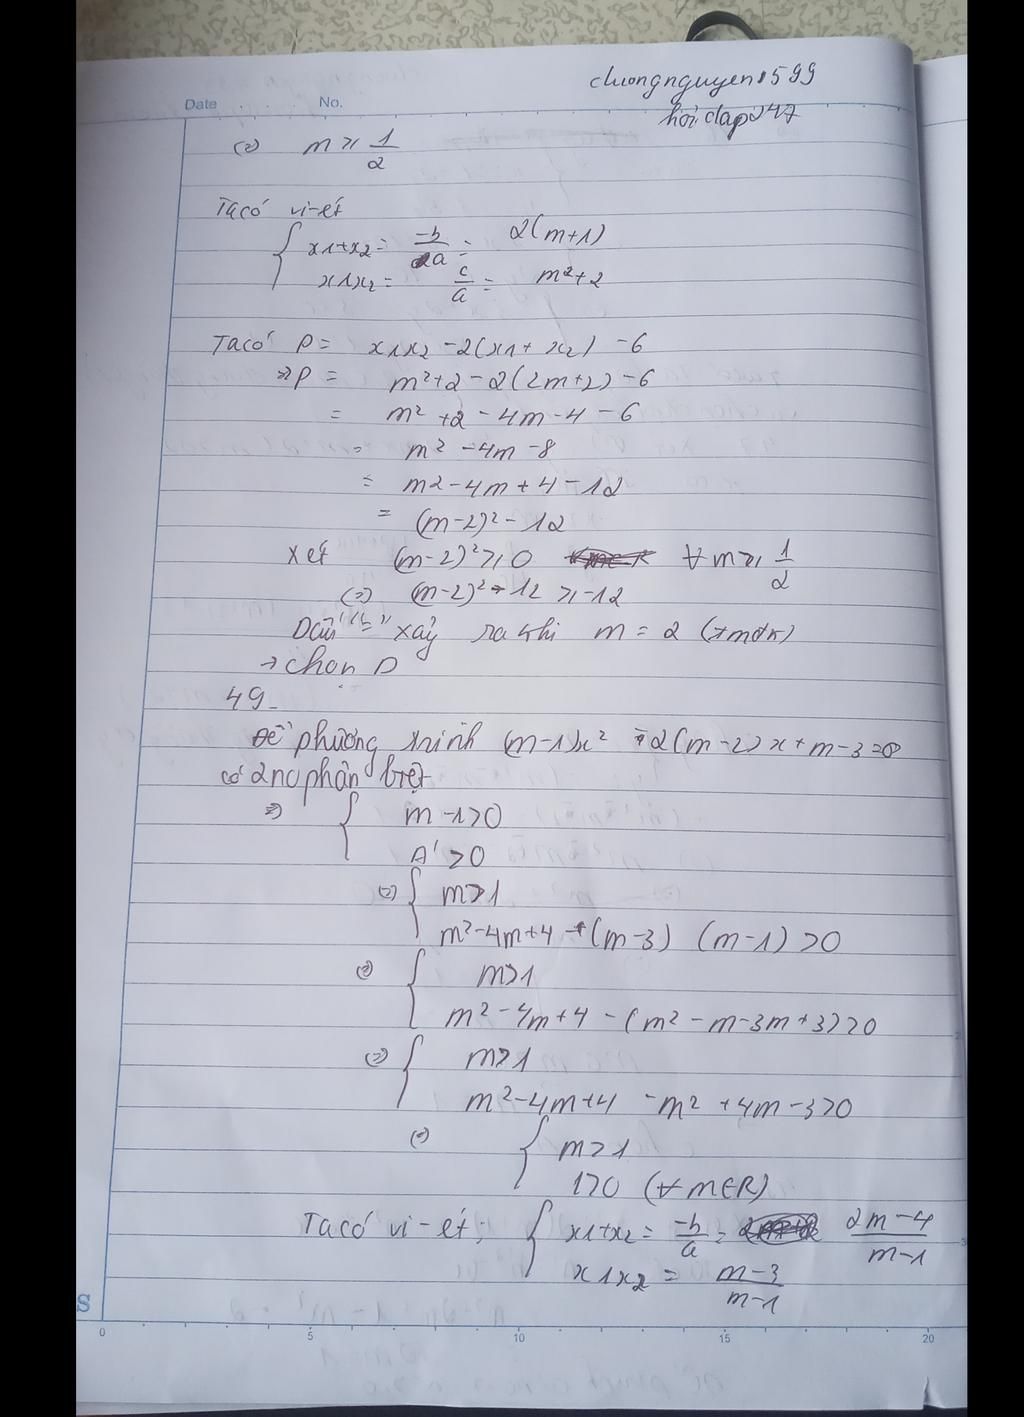 chuongnguyen1599
hỏi đap247
Date No.
(=) m ≥ 1/2
Ta có vi-ét
{ x1+x2 = -b/a = 2(m+1)
x1x2 = c/a = m²+2
Ta có P = x1x2 -2(x1+x2) -6
=> P = m²+2 -2(2m+2) -6
= m² +2 -4m -4 -6
= m² -4m -8
= m2 -4m +4 -12
= (m-2)² -12
Xét (m-2)² ≥ 0 ∀ m ≥ 1/2
(=) (m-2)² - 12 ≥ -12
Dấu "=" xảy ra khi m = 2 (tmđk)
→ chọn D
49-
Để phương trình (m-1)x² -2(m-2)x+m-3=0
có 2 no phân biệt
=> { m-1>0
Δ' >0
(=) { m>1
m²-4m+4 -(m-3) (m-1) >0
(=) { m>1
m²-4m+4 -(m²-m-3m+3)>0
(=) { m>1
m²-4m+4 -m² +4m-3>0
(=) { m>1
1>0 (∀ m∈R)
Ta có vi-ét: { x1+x2 = -b/a = 2m-4/m-1
x1x2 = m-3/m-1
S
0 5 10 15 20